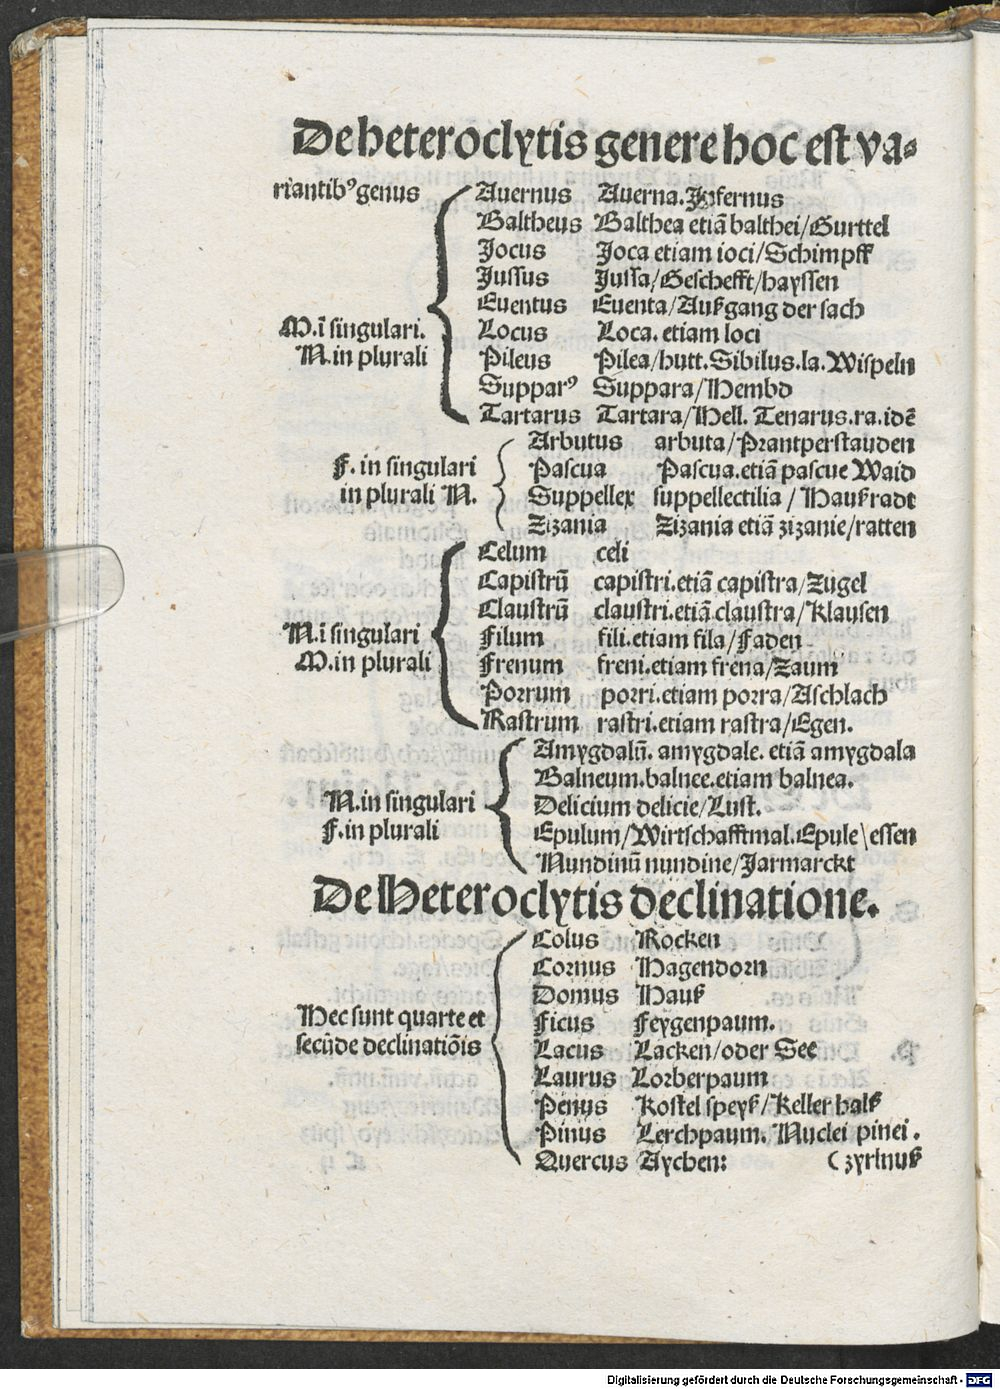 De heteroclytis genere hoc est va⸗
riantibꝰ genus
Auernus Auerna. Infernus
Baltheus Balthea etiā balthei/Gurttel
Jocus Joca etiam ioci/Schimpff
Jussus Jussa/Geschefft/hayssen
Euentus Euenta/Außgang der sach
M. ī singulari. Locus Loca. etiam loci
N. in plurali Pileus Pilea/hutt. Sibilus. la. Wispeln
Supparꝰ Suppara/Hembd
Tartarus Tartara/Hell. Tenarus. ra. idē
Arbutus arbuta/Prantperstauden
F. in singulari Pascua Pascua. etiā pascue Waid
in plurali N. Suppellex suppellectilia/Haußradt
Zizania Zizania etiā zizanie/ratten
Celum celi
Capistrū capistri. etiā capistra/Zugel
Claustrū claustri. etiā claustra/Klausen
N. ī singulari Filum fili. etiam fila/Faden
M. in plurali Frenum freni. etiam frena/Zaum
Porrum porri. etiam porra/Aschlach
Rastrum rastri. etiam rastra/Egen.
Amygdalū. amygdale. etiā amygdala
Balneum. balnee. etiam balnea.
N. in singulari Delicium delicie/Lust.
F. in plurali Epulum/Wirtschafftmal. Epule\essen
Nundinū nundine/Jarmarckt
De Heteroclytis declinatione.
Colus Rocken
Cornus Hagendorn
Domus Hauß
Hec sunt quarte et Ficus Feygenpaum.
secūde declinatiōis Lacus Lacken/oder See
Laurus Lorberpaum
Penus Kostel speyß/Keller halß
Pinus Lerchpaum. Nuclei pinei.
Quercus Aychen: (zyrlnuß
Digitalisierung gefördert durch die Deutsche Forschungsgemeinschaft - DFG